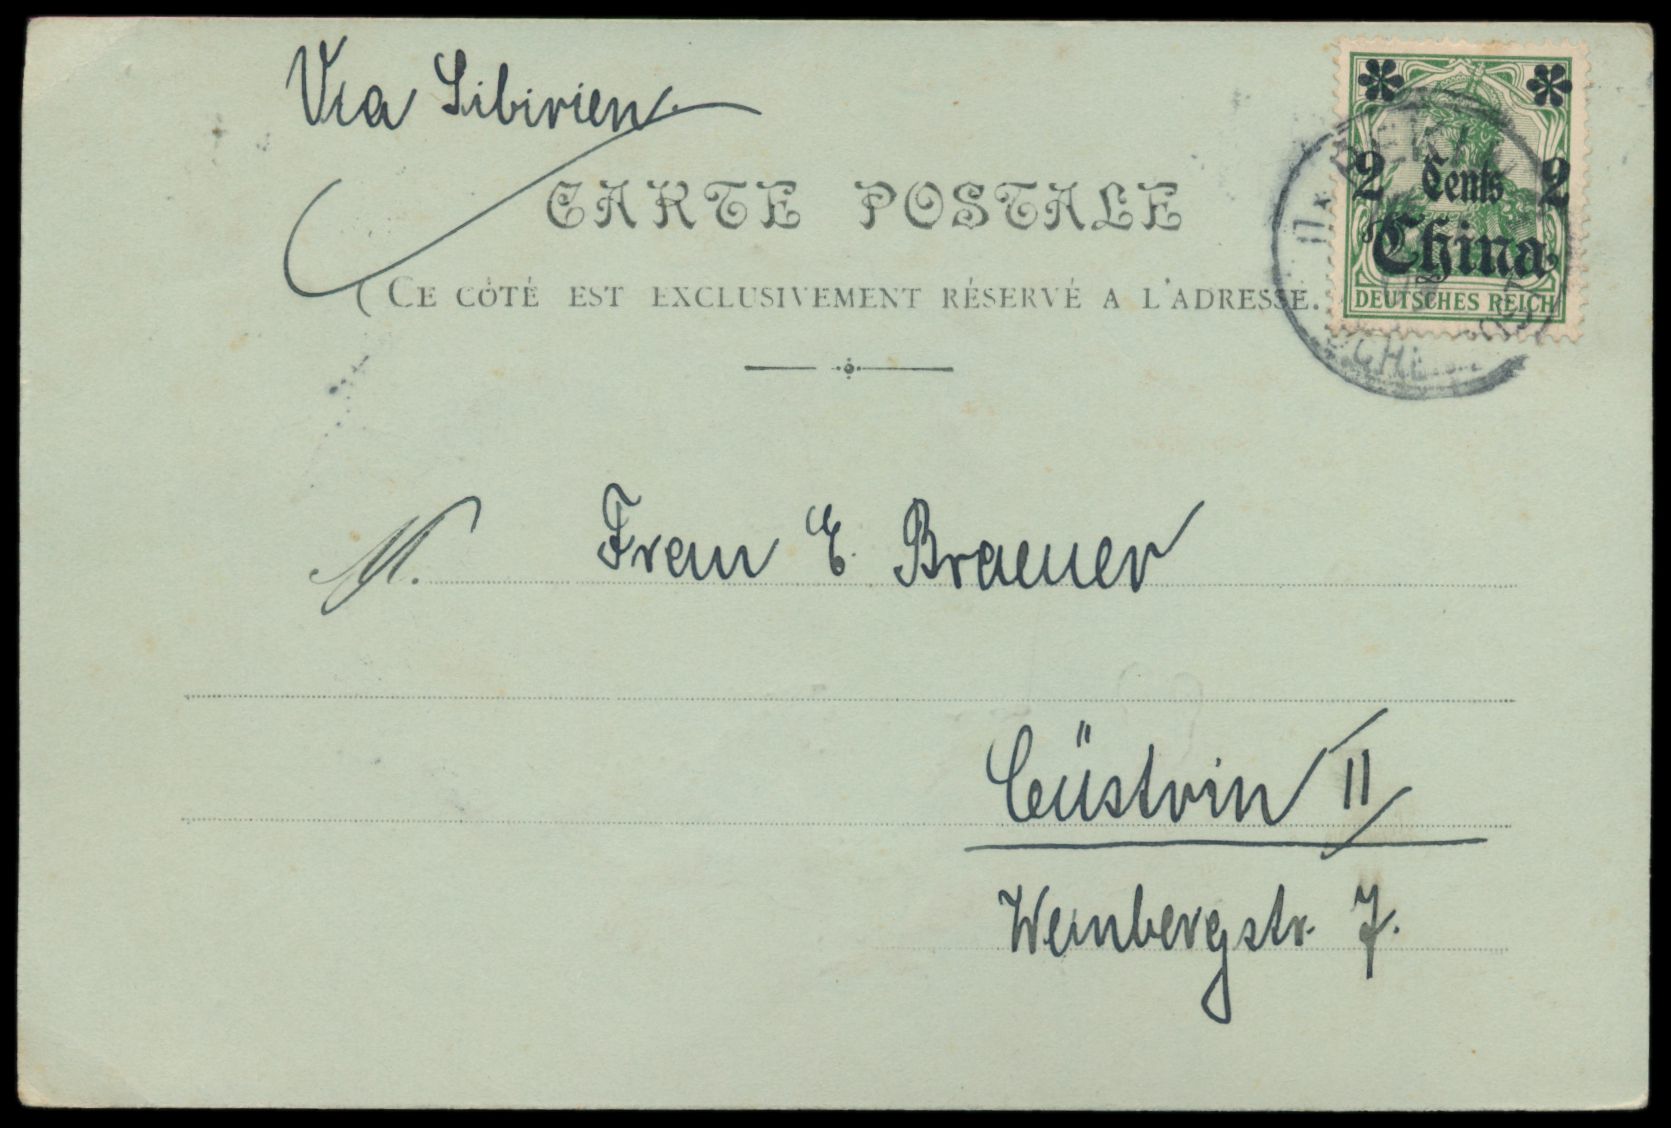 Via Sibirien
CARTE POSTALE
(CE CÔTÉ EST EXCLUSIVEMENT RÉSERVÉ A L'ADRESSE.
2 Cents 2
China
DEUTSCHES REICH
M. Frau E. Braeuer
Cüstrin II
Weinbergstr. 7.